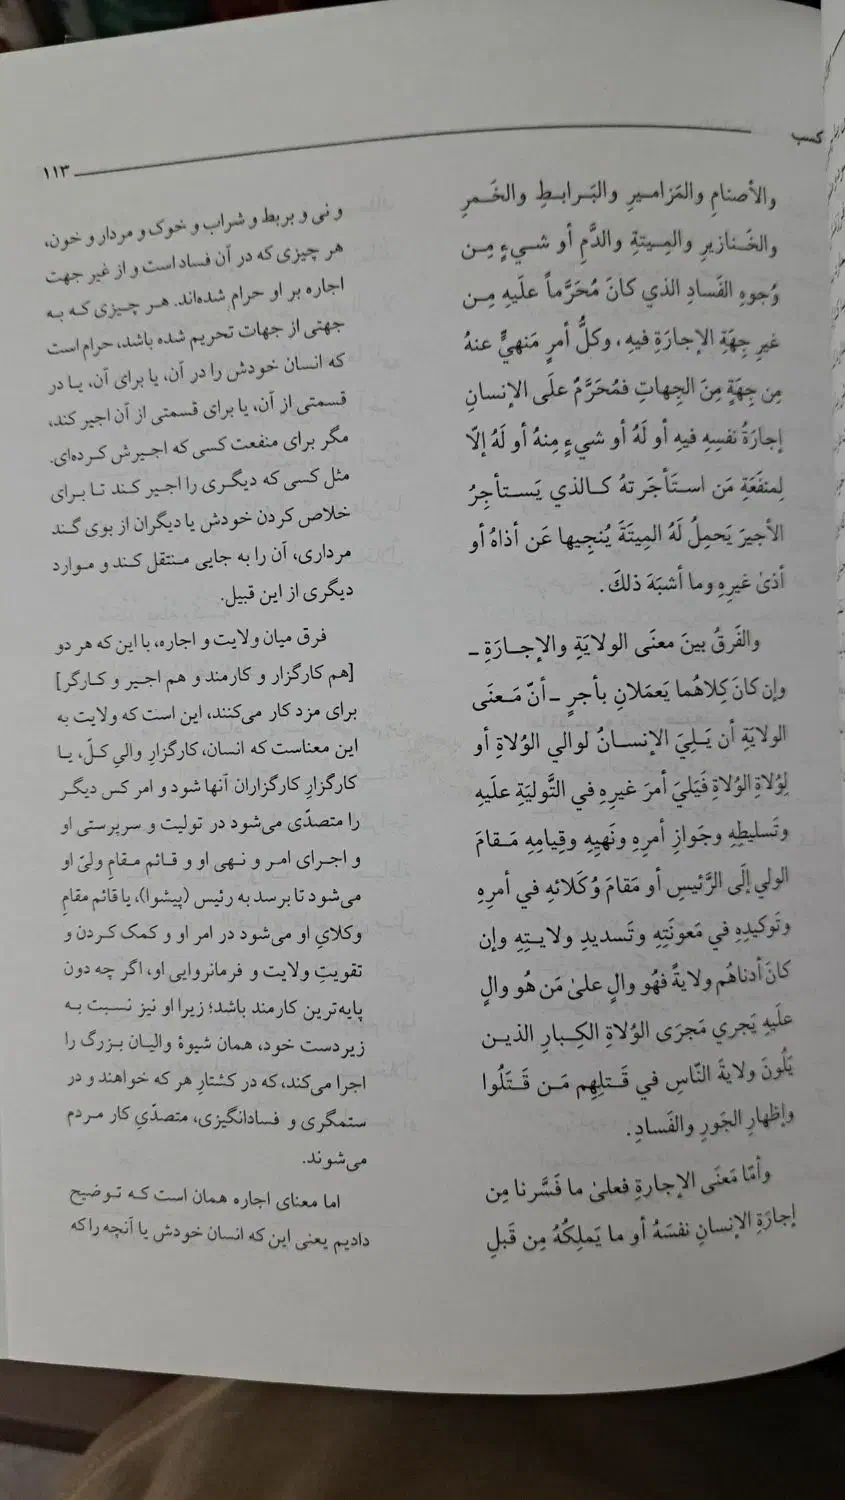 کسب
۱۱۳
والأصنامِ والمَزامـيرِ والبَـرابـطِ والخَـمرِ
والخَـنازيرِ والمِـيتةِ والدَّمِ أو شـيءٍ مِـن
وُجوهِ الفَسادِ الذي كانَ مُحَرَّماً علَيهِ مِـن
غيرِ جِهَةِ الإجارَةِ فيهِ، وكلُّ أمرٍ مَنهيٍّ عنهُ
مِن جِهَةٍ مِنَ الجِهاتِ فمُحَرَّمٌ علَى الإنسانِ
إجارَةُ نفسِهِ فيهِ أو لَهُ أو شيءٍ مِنهُ أو لَهُ إلّا
لِمنفَعَةِ مَن استَأجَرتهُ كـالذي يَسـتأجِرُ
الأجيرَ يَحمِلُ لَهُ المِيتَةَ يُنجِيها عَن أذاهُ أو
أذىٰ غيرِهِ وما أشبَهَ ذلكَ.
والفَرقُ بينَ معنَى الولايَةِ والإجـارَةِ ـ
وإن كانَ كِلاهُما يَعمَلانِ بأجرٍ ـ أنّ مَـعنَى
الولايَةِ أن يَـلِيَ الإنسـانُ لوالي الوُلاةِ أو
لِوُلاةِ الوُلاةِ فَيَليَ أمرَ غيرِهِ في التَّوليَةِ علَيهِ
وتَسليطِهِ وجَوازِ أمرِهِ ونَهيِهِ وقِيامِهِ مَـقامَ
الولي إلَى الرَّئيسِ أو مَقامَ وُكَلائهِ في أمرِهِ
وتَوكيدِهِ في مَعونَتِهِ وتَسديدِ ولايـتِهِ وإن
كانَ أدناهُم ولايةً فهُو والٍ علىٰ مَن هُو والٍ
علَيهِ يَجري مَجرَى الوُلاةِ الكِـبارِ الذيـن
يَلُونَ ولايةَ النّاسِ في قَـتلِهِم مَـن قَـتَلُوا
وإظهارِ الجَورِ والفَسادِ.
وأمّا مَعنَى الإجارةِ فعلىٰ ما فَسَّرنا مِن
إجارَةِ الإنسانِ نفسَهُ أو ما يَملِكُهُ مِن قَبلِ
و نی و بربط و شراب و خوک و مردار و خون،
هر چیزی که در آن فساد است و از غیر جهت
اجاره بر او حرام شده‌اند. هـر چـیزی کـه بـه
جهتی از جهات تحریم شده باشد، حرام است
که انسان خودش را در آن، یا برای آن، یـا در
قسمتی از آن، یا برای قسمتی از آن اجیر کند،
مگر برای منفعت کسی که اجـیرش کـرده‌ای.
مثل کسی که دیگـری را اجـیر کـند تـا بـرای
خلاص کردن خودش یا دیگران از بوی گـند
مرداری، آن را به جایی مـنتقل کـند و مـوارد
دیگری از این قبیل.
فرق میان ولایت و اجاره، با این که هر دو
[هم کارگزار و کارمند و هم اجـیر و کـارگر]
برای مزد کار می‌کنند، این است که ولایت به
این معناست که انسان، کارگزارِ والیِ کـلّ، یـا
کارگزارِ کارگزاران آنها شود و امر کس دیگـر
را متصدّی می‌شود در تولیت و سرپرستی او
و اجـرای امـر و نـهی او و قـائم مـقامِ ولیّ او
می‌شود تا برسد به رئیس (پیشوا)، یا قائم مقامِ
وکلایِ او می‌شود در امر او و کمک کـردن و
تقویتِ ولایت و فرمانروایی او، اگر چه دون
پایه‌ترین کارمند باشد؛ زیرا او نیز نسبت بـه
زیردست خود، همان شیوهٔ والیـان بـزرگ را
اجرا می‌کند، که در کشتارِ هر که خواهند و در
ستمگری و فسادانگیزی، متصدّیِ کار مـردم
می‌شوند.
اما معنای اجاره همان است کـه تـوضیح
دادیم یعنی این که انسان خودش یا آنچه را که